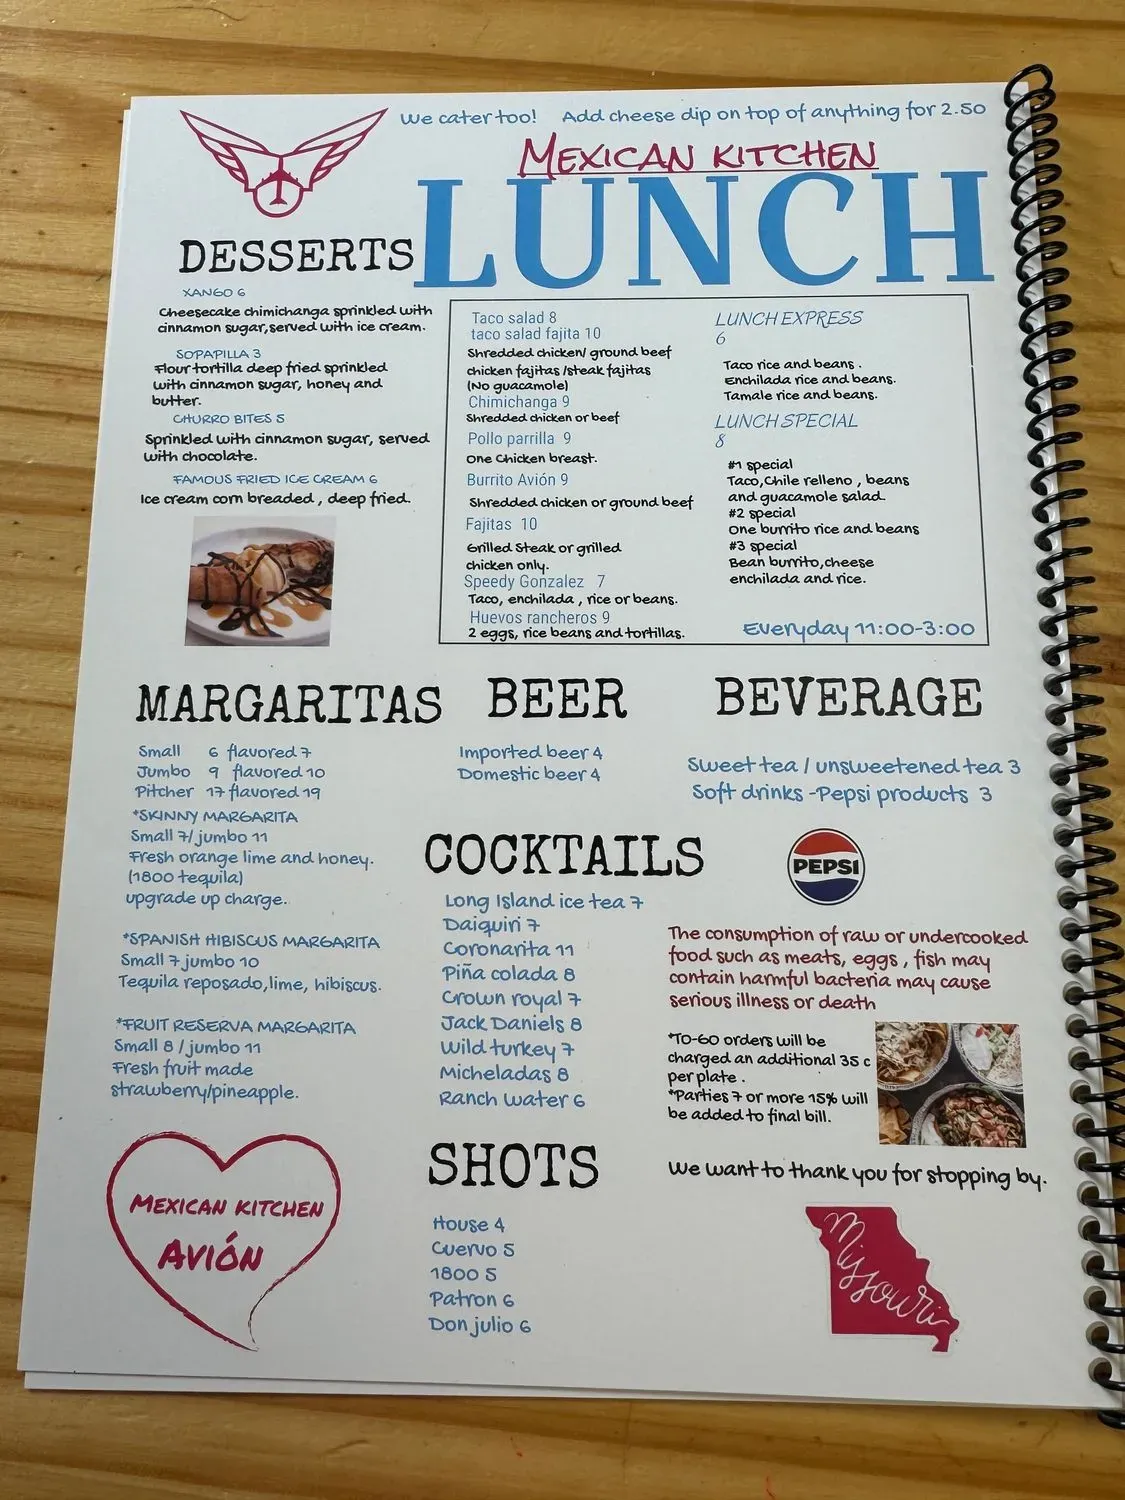 We cater too! Add cheese dip on top of anything for 2.50
MEXICAN KITCHEN
LUNCH
DESSERTS
XANGO 6
Cheesecake chimichanga sprinkled with
cinnamon sugar, served with ice cream.
SOPAPILLA 3
Flour tortilla deep fried sprinkled
with cinnamon sugar, honey and
butter.
CHURRO BITES 5
Sprinkled with cinnamon sugar, served
with chocolate.
FAMOUS FRIED ICE CREAM 6
Ice cream corn breaded , deep fried.
Taco salad 8
taco salad fajita 10
Shredded chicken/ ground beef
chicken fajitas /steak fajitas
(No guacamole)
Chimichanga 9
Shredded chicken or beef
Pollo parrilla 9
One Chicken breast.
Burrito Avión 9
Shredded chicken or ground beef
Fajitas 10
Grilled Steak or grilled
chicken only.
Speedy Gonzalez 7
Taco, enchilada , rice or beans.
Huevos rancheros 9
2 eggs, rice beans and tortillas.
LUNCH EXPRESS
6
Taco rice and beans .
Enchilada rice and beans.
Tamale rice and beans.
LUNCH SPECIAL
8
#1 special
Taco,Chile relleno , beans
and guacamole salad.
#2 special
One burrito rice and beans
#3 special
Bean burrito,cheese
enchilada and rice.
Everyday 11:00-3:00
MARGARITAS
Small 6 flavored 7
Jumbo 9 flavored 10
Pitcher 17 flavored 19
*SKINNY MARGARITA
Small 7/ jumbo 11
Fresh orange lime and honey.
(1800 tequila)
upgrade up charge.
*SPANISH HIBISCUS MARGARITA
Small 7 jumbo 10
Tequila reposado,lime, hibiscus.
*FRUIT RESERVA MARGARITA
Small 8 / jumbo 11
Fresh fruit made
strawberry/pineapple.
MEXICAN KITCHEN
AVIÓN
BEER
Imported beer 4
Domestic beer 4
COCKTAILS
Long Island ice tea 7
Daiquiri 7
Coronarita 11
Piña colada 8
Crown royal 7
Jack Daniels 8
Wild turkey 7
Micheladas 8
Ranch water 6
SHOTS
House 4
Cuervo 5
1800 5
Patron 6
Don julio 6
BEVERAGE
Sweet tea / unsweetened tea 3
Soft drinks -Pepsi products 3
PEPSI
The consumption of raw or undercooked
food such as meats, eggs , fish may
contain harmful bacteria may cause
serious illness or death
*TO-GO orders will be
charged an additional 35 c
per plate .
*Parties 7 or more 15% will
be added to final bill.
We want to thank you for stopping by.
Missouri